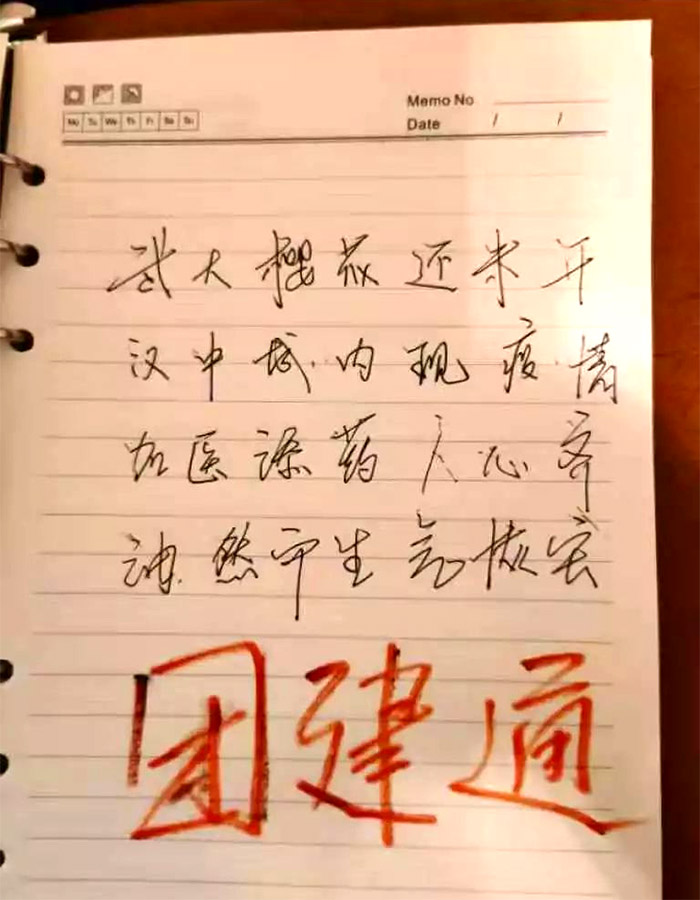 Memo No
Mo Tu We Th Fr Sa Su
Date / /
武大樱花还未开
汉中城内现疫情
加医添药人心齐
油然而生
团建通